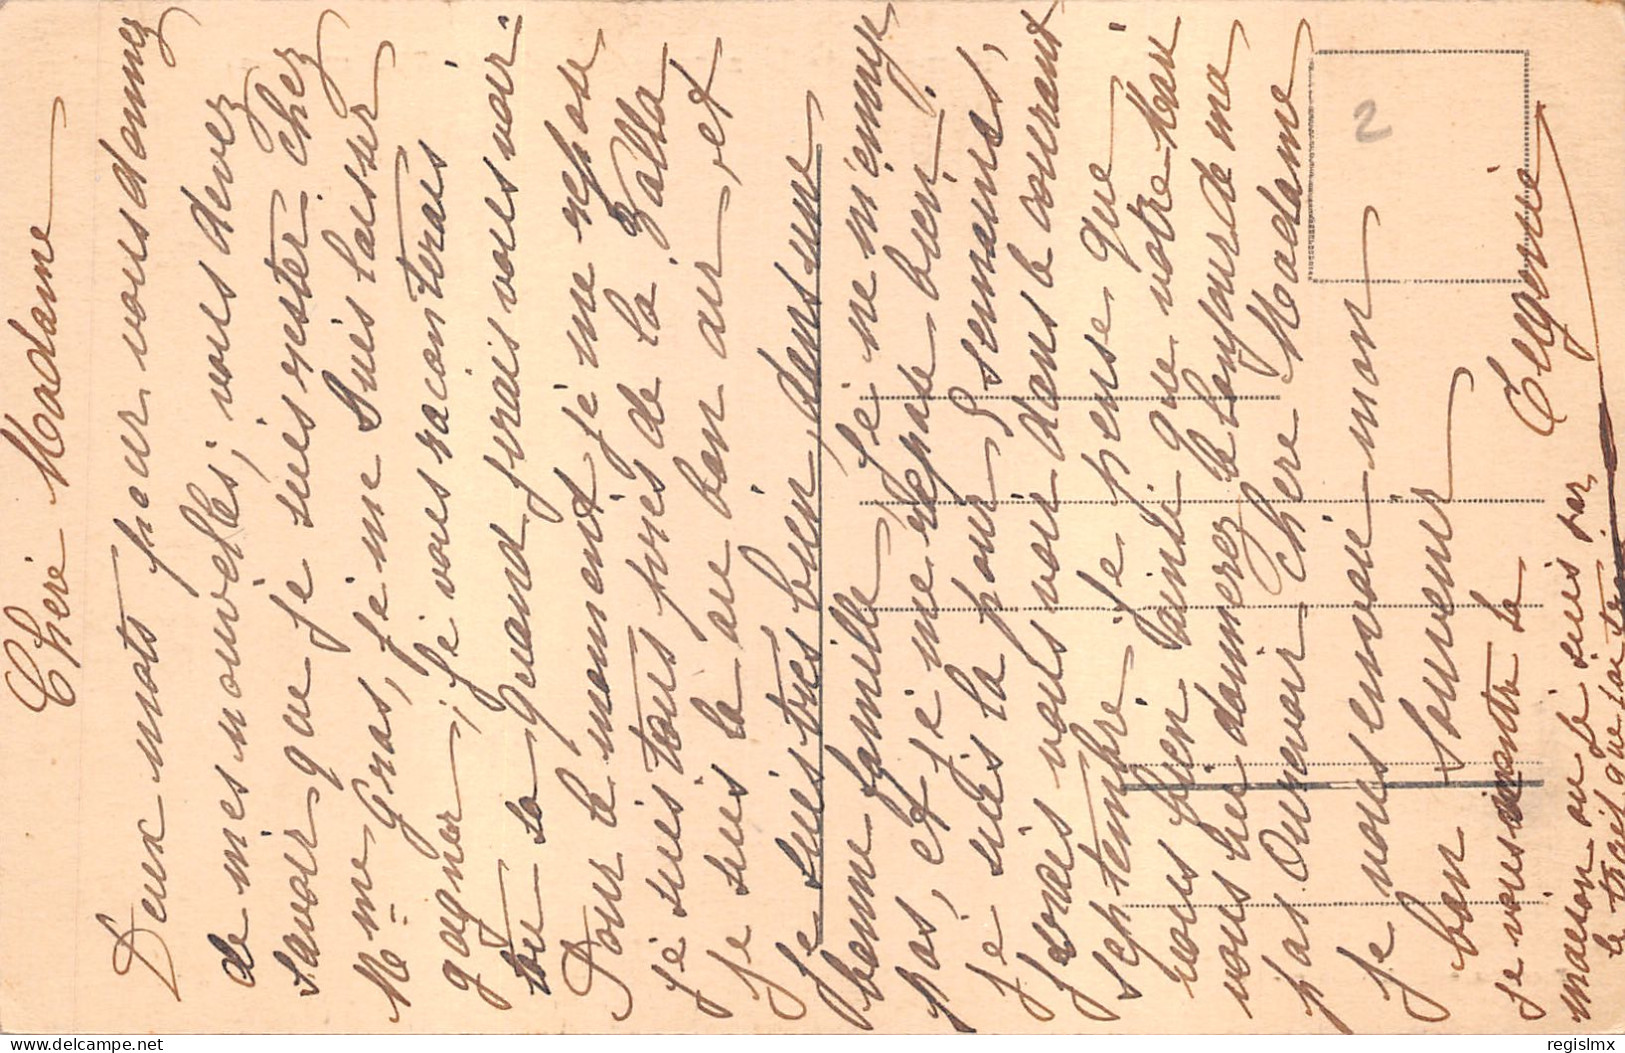 Chère Madame
Deux mots pour vous donnez
de mes nouvelles, vous devez
savoir que je suis rester chez
Mme Gras, je me suis laisser
gagner, je vous raconterais
tou sa quand j'irais vous voir.
Pour le moment je me repose
je suis tous près de la
je suis la au bon air, et
je suis très bien, dans une
bonne famille je ne m'ennuye
pas, et je me repose bien.
je suis la pour 5 semaines,
j'orais vous voir dans le courant
septembre je pense que
vous bien ainsi que votre Mari
vous lui donnerez le bonjour de ma
pas Ourevoir chère Madame
je vous envoie mon
bon souvenir Eugenie
je vous montre la
maison ou je suis par
le trais que fait
2
delcampe.net
regislmx